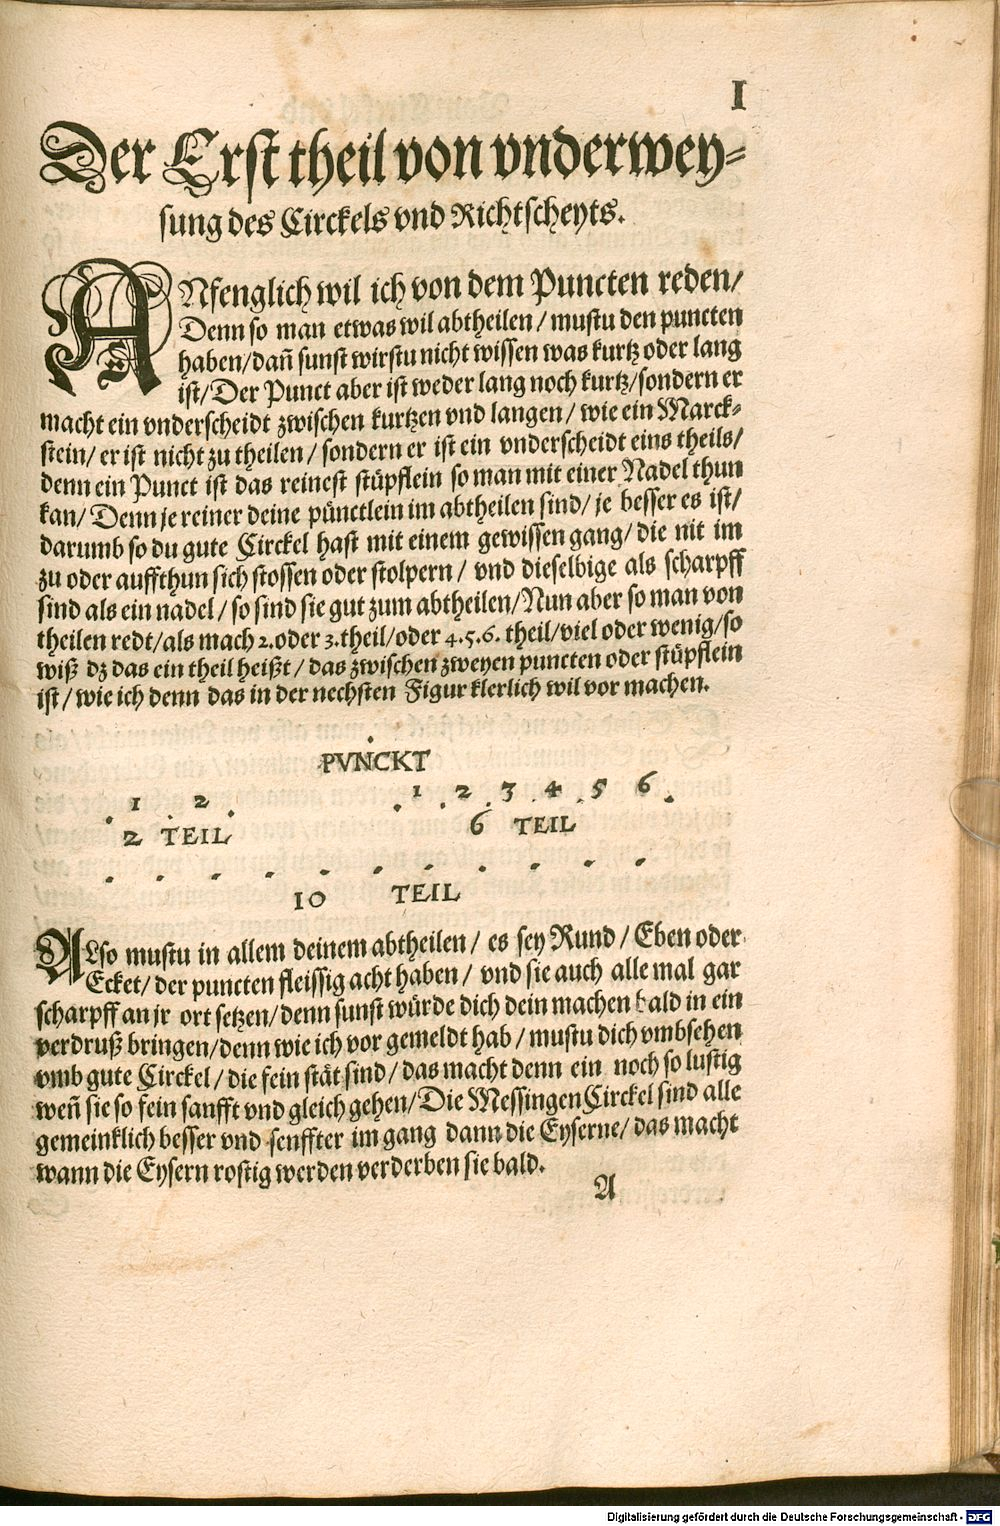 I
Der Erst theil von vnderwey⸗
sung des Circkels vnd Richtscheyts.
ANfenglich wil ich von dem Puncten reden/
Denn so man etwas wil abtheilen/ mustu den puncten
haben/ dañ sunst wirstu nicht wissen was kurtz oder lang
ist/ Der Punct aber ist weder lang noch kurtz/ sondern er
macht ein vnderscheidt zwischen kurtzen vnd langen/ wie ein Marck⸗
stein/ er ist nicht zu theilen/ sondern er ist ein vnderscheidt eins theils/
denn ein Punct ist das reinest stüpflein so man mit einer Nadel thun
kan/ Denn je reiner deine pünctlein im abtheilen sind/ je besser es ist/
darumb so du gute Circkel hast mit einem gewissen gang/ die nit im
zu oder auffthun sich stossen oder stolpern/ vnd dieselbige als scharpff
sind als ein nadel/ so sind sie gut zum abtheilen/ Nun aber so man von
theilen redt/ als mach 2. oder 3. theil/ oder 4. 5. 6. theil/ viel oder wenig/ so
wiß dz das ein theil heißt/ das zwischen zweyen puncten oder stüpflein
ist/ wie ich denn das in der nechsten Figur klerlich wil vor machen.
PVNCKT
1 2
1 2 3 4 5 6
2 TEIL
6 TEIL
10 TEIL
ALso mustu in allem deinem abtheilen/ es sey Rund/ Eben oder
Ecket/ der puncten fleissig acht haben/ vnd sie auch alle mal gar
scharpff an jr ort setzen/ denn sunst würde dich dein machen bald in ein
verdruß bringen/ denn wie ich vor gemeldt hab/ mustu dich vmbsehen
vmb gute Circkel/ die fein stät sind/ das macht denn ein noch so lustig
weñ sie so fein sanfft vnd gleich gehen/ Die Messingen Circkel sind alle
gemeinklich besser vnd senffter im gang dann die Eyserne/ das macht
wann die Eysern rostig werden verderben sie bald.
A
Digitalisierung gefördert durch die Deutsche Forschungsgemeinschaft - DFG